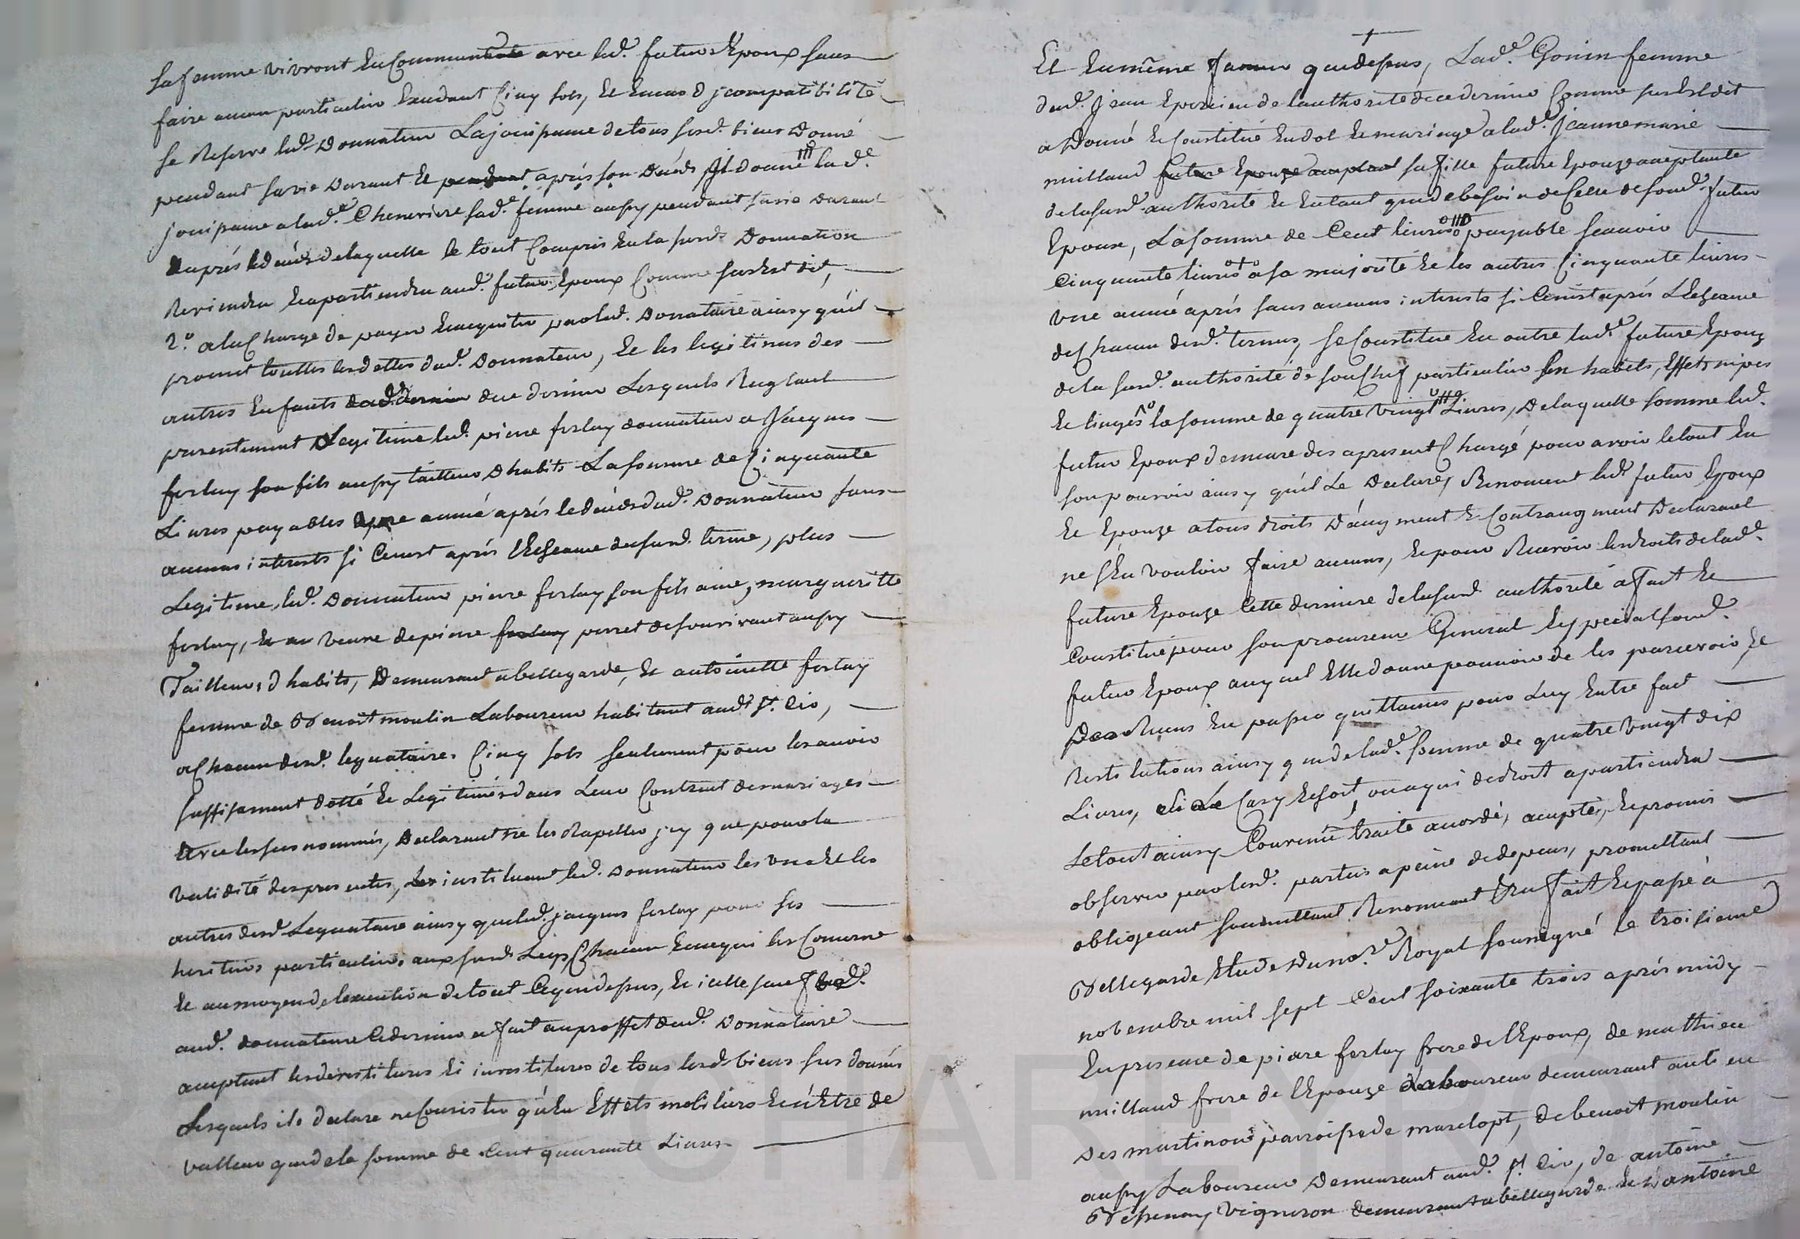 sa femme vivront en Communauté avec led. futur Epoux sans
faire aucun particulier Excedant Cinq sols, Et En cas d jcompatibilité
se Reserve led. Donnateur La jouissance de tous sesd. biens Donné
pendant sa vie Durant Et pendant après son Décés Il donne lad.e
jouissance a lad.e Chenevriere sad.e femme aussy pendant sa vie Durant
Enprés le décés de laquelle le tout Compris En la susd. Donnation
Reviendra Et apartiendra aud. futur Epoux Comme sus Est dit,
2.º a la Charge de payer Et acquiter par led. Donnataire ainsy qu'il
promet touttes les dettes dud. Donnateur, Et les legitimes des
autres Enfants dud. dernier de ce dernier Lesquels Reglant
presentement Legitime led. pierre ferlay donnateur a Jacques
ferlay son fils aussy tailleur d habits La somme de Cinquante
Livres payables année après le décés dud. Donnateur sans
aucuns interests si Ce n'est après l'Echeance du susd. terme, plus
Legitime led. Donnateur pierre ferlay son fils ainé, margueritte
ferlay, veuve de pierre ferlay perret de son vivant aussy
Tailleur d habits, Demeurant a bellegarde, Et antoinette ferlay
femme de Benoit moulin Laboureur habitant aud. St. Cir,
a Chacun desd. legataires Cinq sols seulement pour les avoir
suffisament dotté Et Legitimés dans Leur Contrat de mariages
avec les sus nommés, Declarant ne les Rapeller jcy que pour la
validité des presentes, Les instituant led. Donnateur les uns Et les
autres desd. Legataire ainsy que led. jacques ferlay pour ses
heritiers particuliers aux susd. Legs Chacun En ce qui les Concerne
Et au moyen de l'execution de tout Ce que dessus, Et icelle sauf
aud. donnateur Ce dernier a fait au proffit dud. Donnataire
acceptant les devestitures Et investitures de tous lesd. biens sus donnés
Lesquels ils declare ne Consister qu'En Effets mobiliers Et n'Etre de
valleur que de la somme de Cent quarante Livres
Et En même que dessus, Lad.e Gonin femme
dud. Jean Epercieu de l'authorité de ce dernier Comme sus Est dit
a Donné Et Constitué En dot Et mariage a lad.e Jeanne marie
milland future Epouze sa fille future Epouze acceptante
de la susd. authorité Et En tant que de besoin de Celle de sond. futur
Epoux, La somme de Cent livres payable scavoir
Cinquante livres a sa majorité Et les autres Cinquante livres
une année après sans aucuns interests si Ce n'est après L'Echeance
de Chacun desd. termes, se Constitue En outre lad.e future Epouze
de la susd. authorité de son Chef particulier ses habits, Effets, nipes
Et linges la somme de quatre vingt Livres, De laquelle somme led.
futur Epoux demeure des apresent Chargé pour avoir le tout En
son pouvoir ainsy qu'il Le Declare, Renoncent lesd. futur Epoux
Et Epouze a tous droits D'augment Et Contraugment Declarant
ne s'En vouloir faire aucuns, Et pour Recevoir les droits de lad.e
future Epouze Cette derniere de la susd. authorité a fait Et
Constitué pour son procureur General Et special sond.
futur Epoux auquel Elle donne pouvoir de les percevoir, Et
Des Recus En passer quittances pour Luy Etre fait
Restitutions ainsy que de lad.e somme de quatre vingt dix
Livres, si Le Cas y Echoit, ou a qui de droit apartiendra
Le tout ainsy Convenu traité accordé, accepté, Et promis
observer par lesd. parties a peine de depens, promettant
obligeant soumettant Renonceant &a fait Et passé à
Bellegarde Etude Du no.re Royal soussigné le troisieme
novembre mil sept Cent soixante trois après midy
En presence de pierre ferlay frere de l'Epoux, de mathieu
milland frere de l'Epouze Laboureur demeurant au lieu
Des martinon parroisse de marclopt, de benoit moulin
aussy Laboureur Demeurant aud. St. Cir, de antoine
vigneron demeurant a bellegarde Et d'antoine
CHAREYRO